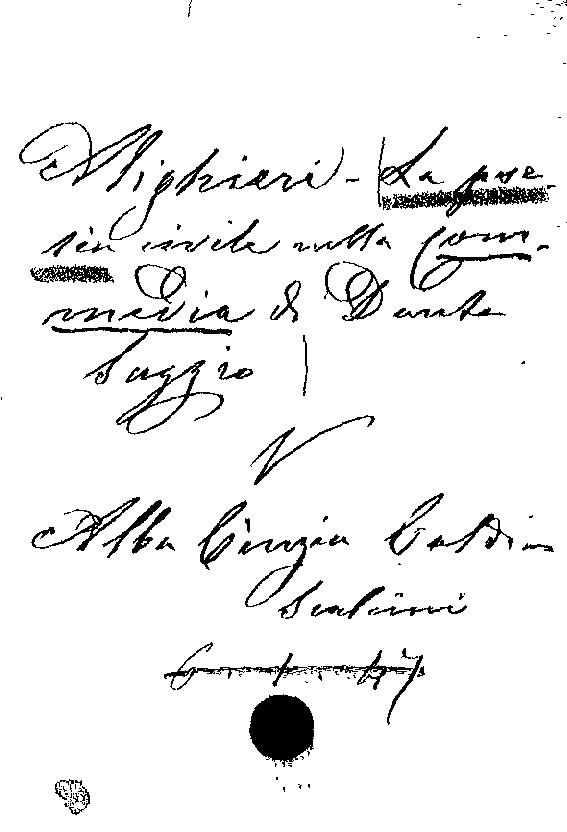 Alighieri - La poe-
sia civile nella Com-
media di Dante
Saggio
V
Alba Cinzia Caldi
Scalini